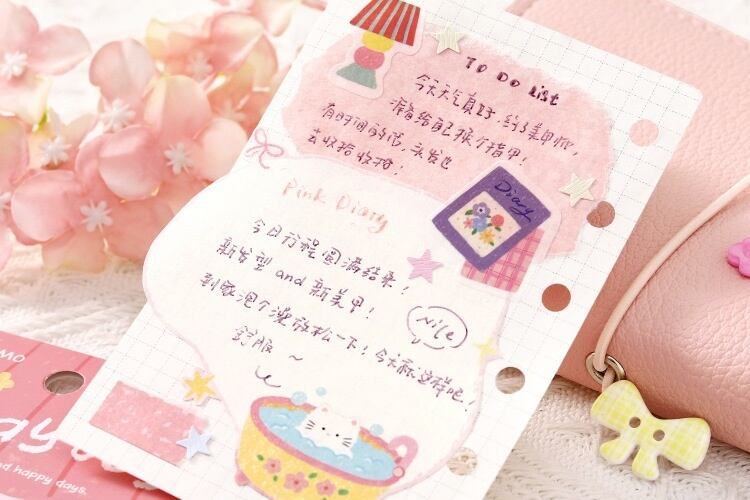 To Do List
今天天气真好,约了美甲啦,
准备给自己换个指甲!
有时间的话,头发也
去收拾收拾!
Diary
Pink Diary
今日行程圆满结束!
新发型 and 新美甲!
到家泡个澡放松一下!今天就这样吧!
舒服~
Nice
MO
ay
nd happy days.